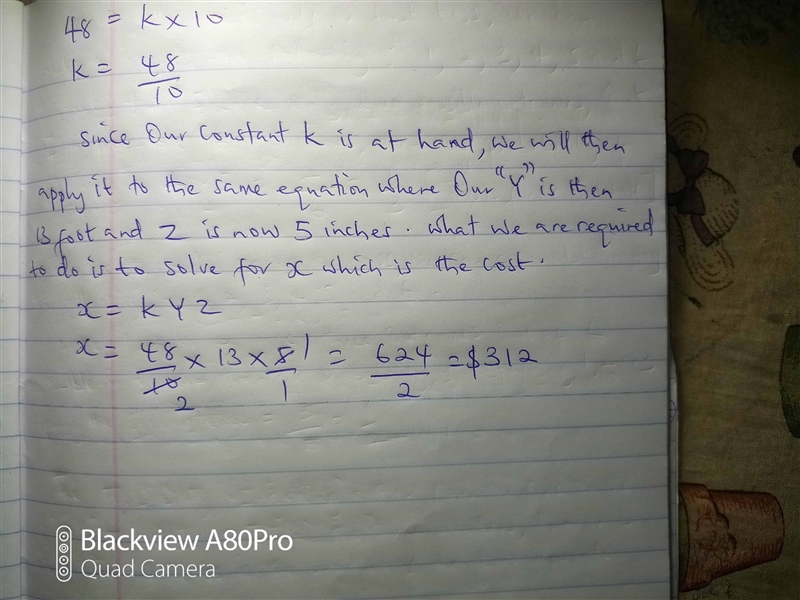 48 = k x 10
k = 48/10
since Our constant k is at hand, we will then
apply it to the same equation where Our "Y" is then
13 foot and Z is now 5 inches. what we are required
to do is to solve for x which is the cost.
x = k Y Z
x = 48/10 2 x 13 x 5/1 1 = 624/2 = $312
Blackview A80Pro
Quad Camera